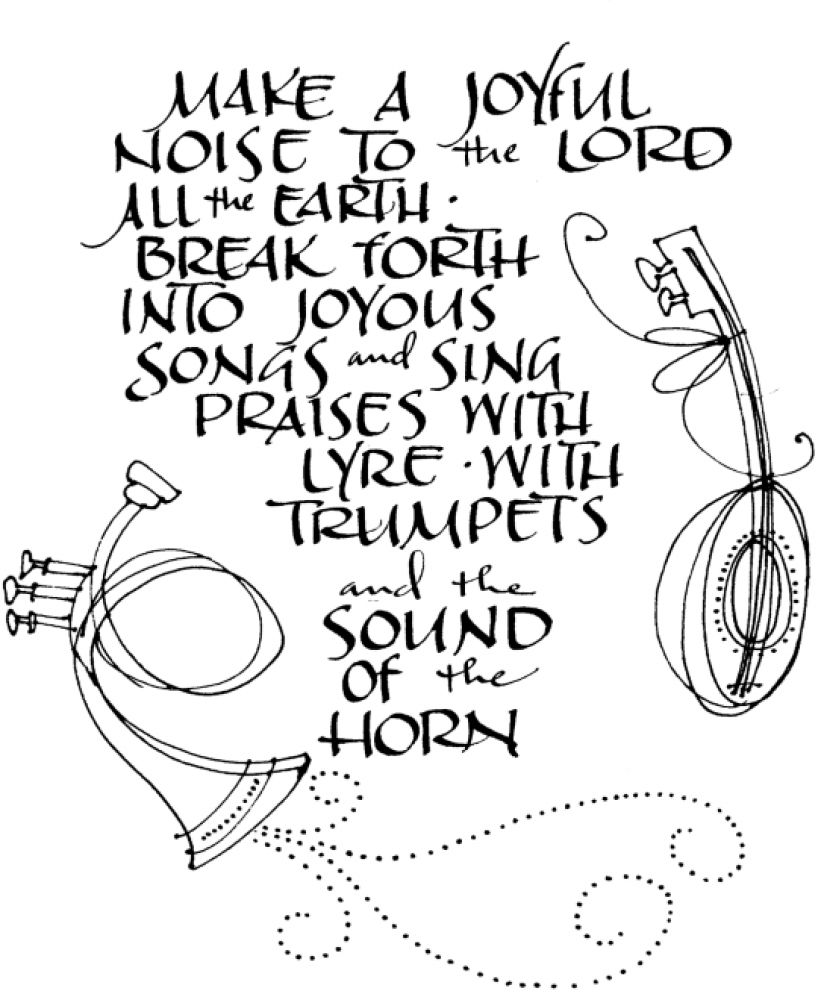 MAKE A JOYFUL
NOISE TO the LORD
ALL the EARTH ·
BREAK FORTH
INTO JOYOUS
SONGS and SING
PRAISES WITH
LYRE · WITH
TRUMPETS
and the
SOUND
OF the
HORN